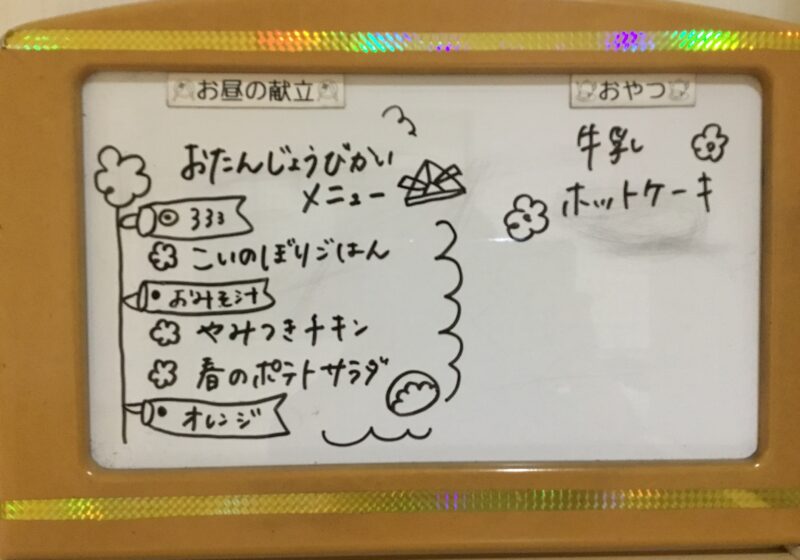 お昼の献立
おたんじょうびかい
メニュー
こいのぼりごはん
おみそ汁
やみつきチキン
春のポテトサラダ
オレンジ
おやつ
牛乳
ホットケーキ